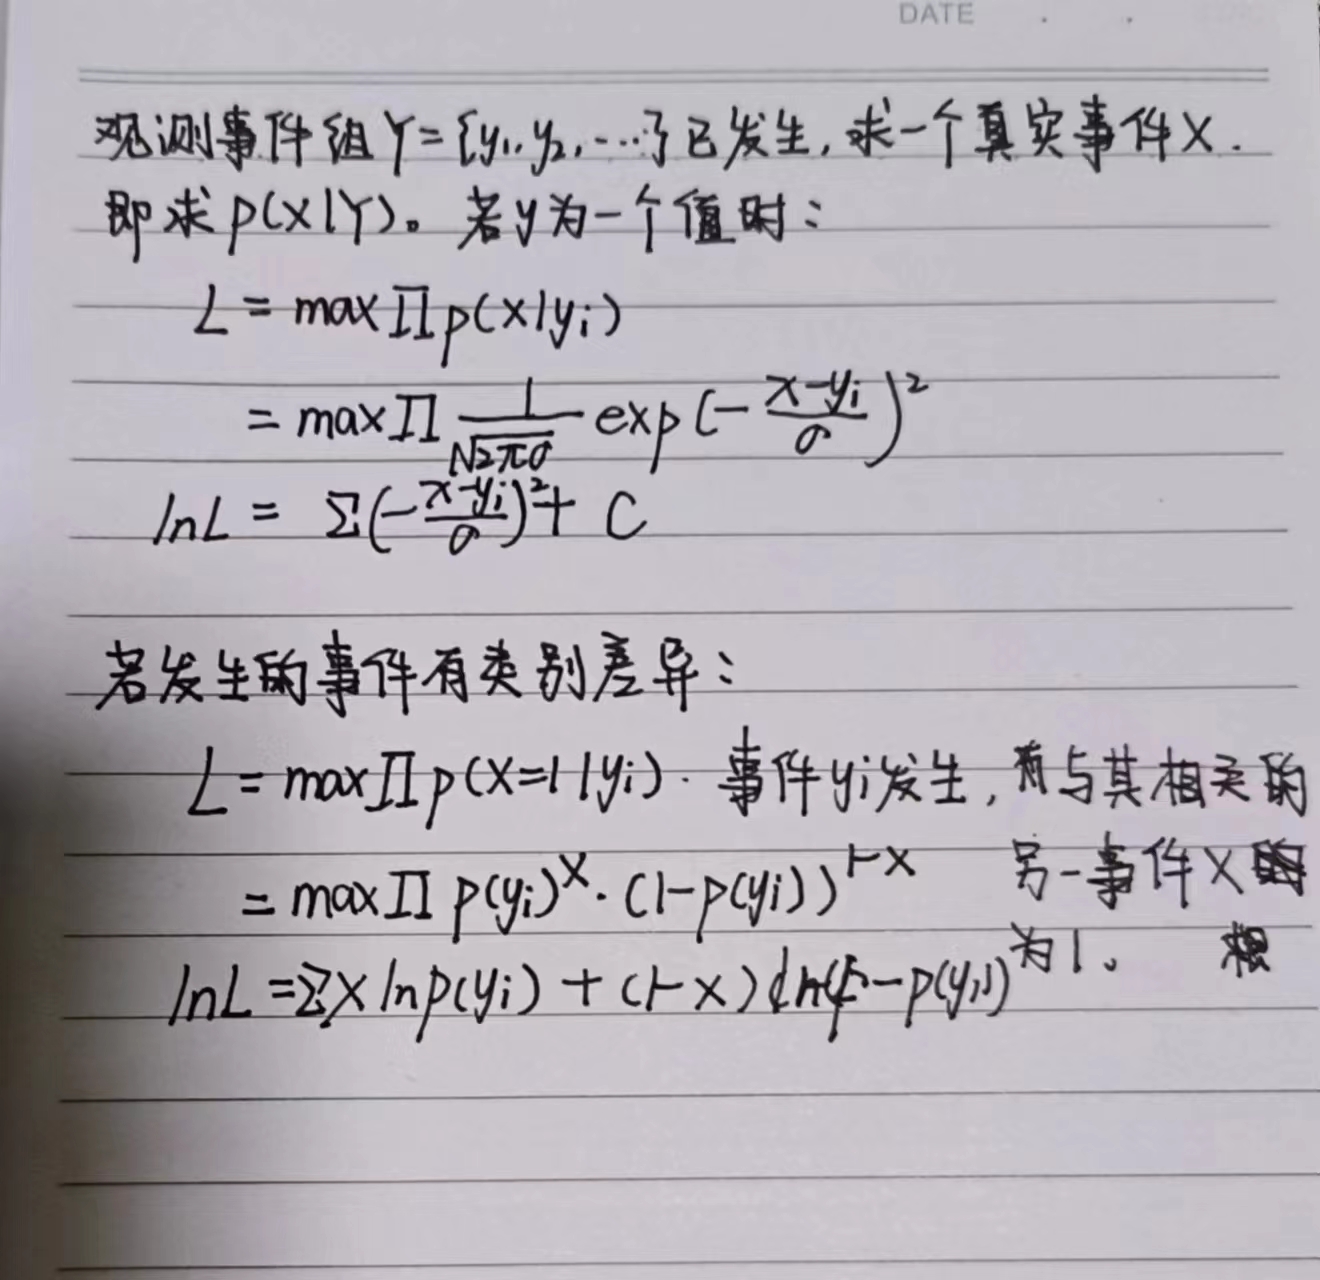 DATE
观测事件组Y={y₁,y₂,…}已发生,求一个真实事件X.
即求p(X|Y)。若y为一个值时:
L = max∏p(x|yᵢ)
= max∏ 1/√2πσ exp(-(x-yᵢ)/σ)²
lnL = Σ(-(x-yᵢ)/σ)²+ C
若发生的事件有类别差异:
L = max∏p(X=1|yᵢ). 事件yᵢ发生,有与其相关的
另一事件X
= max∏ p(yᵢ)ˣ·(1-p(yᵢ))¹⁻ˣ
为1、
lnL =Σx lnp(yᵢ) + (1-x) ln(1-p(yᵢ))